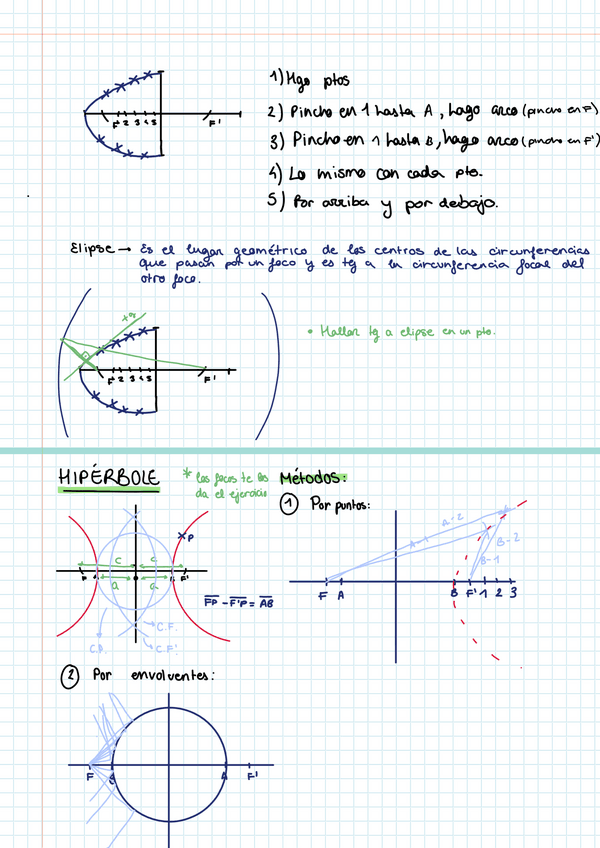 1) Hgo ptos
2) Pincho en 1 hasta A, hago arco (pincho en F)
3) Pincho en 1 hasta B, hago arco (pincho en F')
4) Lo mismo con cada pto.
5) Por arriba y por debajo.
F 1 2 3 4 5 F'
Elipse → Es el lugar geométrico de los centros de las circunferencias
que pasan por un foco y es tg a la circunferencia focal del
otro foco.
• Hallar tg a elipse en un pto.
F 1 2 3 4 5 F'
HIPÉRBOLE
* los focos te los
da el ejercicio
Métodos:
① Por puntos:
P
c c
F F'
a a
FP - F'P = AB
C.F.
C.P.
C.F'.
A-1
A-2
B-2
B-1
F A B F' 1 2 3
② Por envolventes:
F A F'